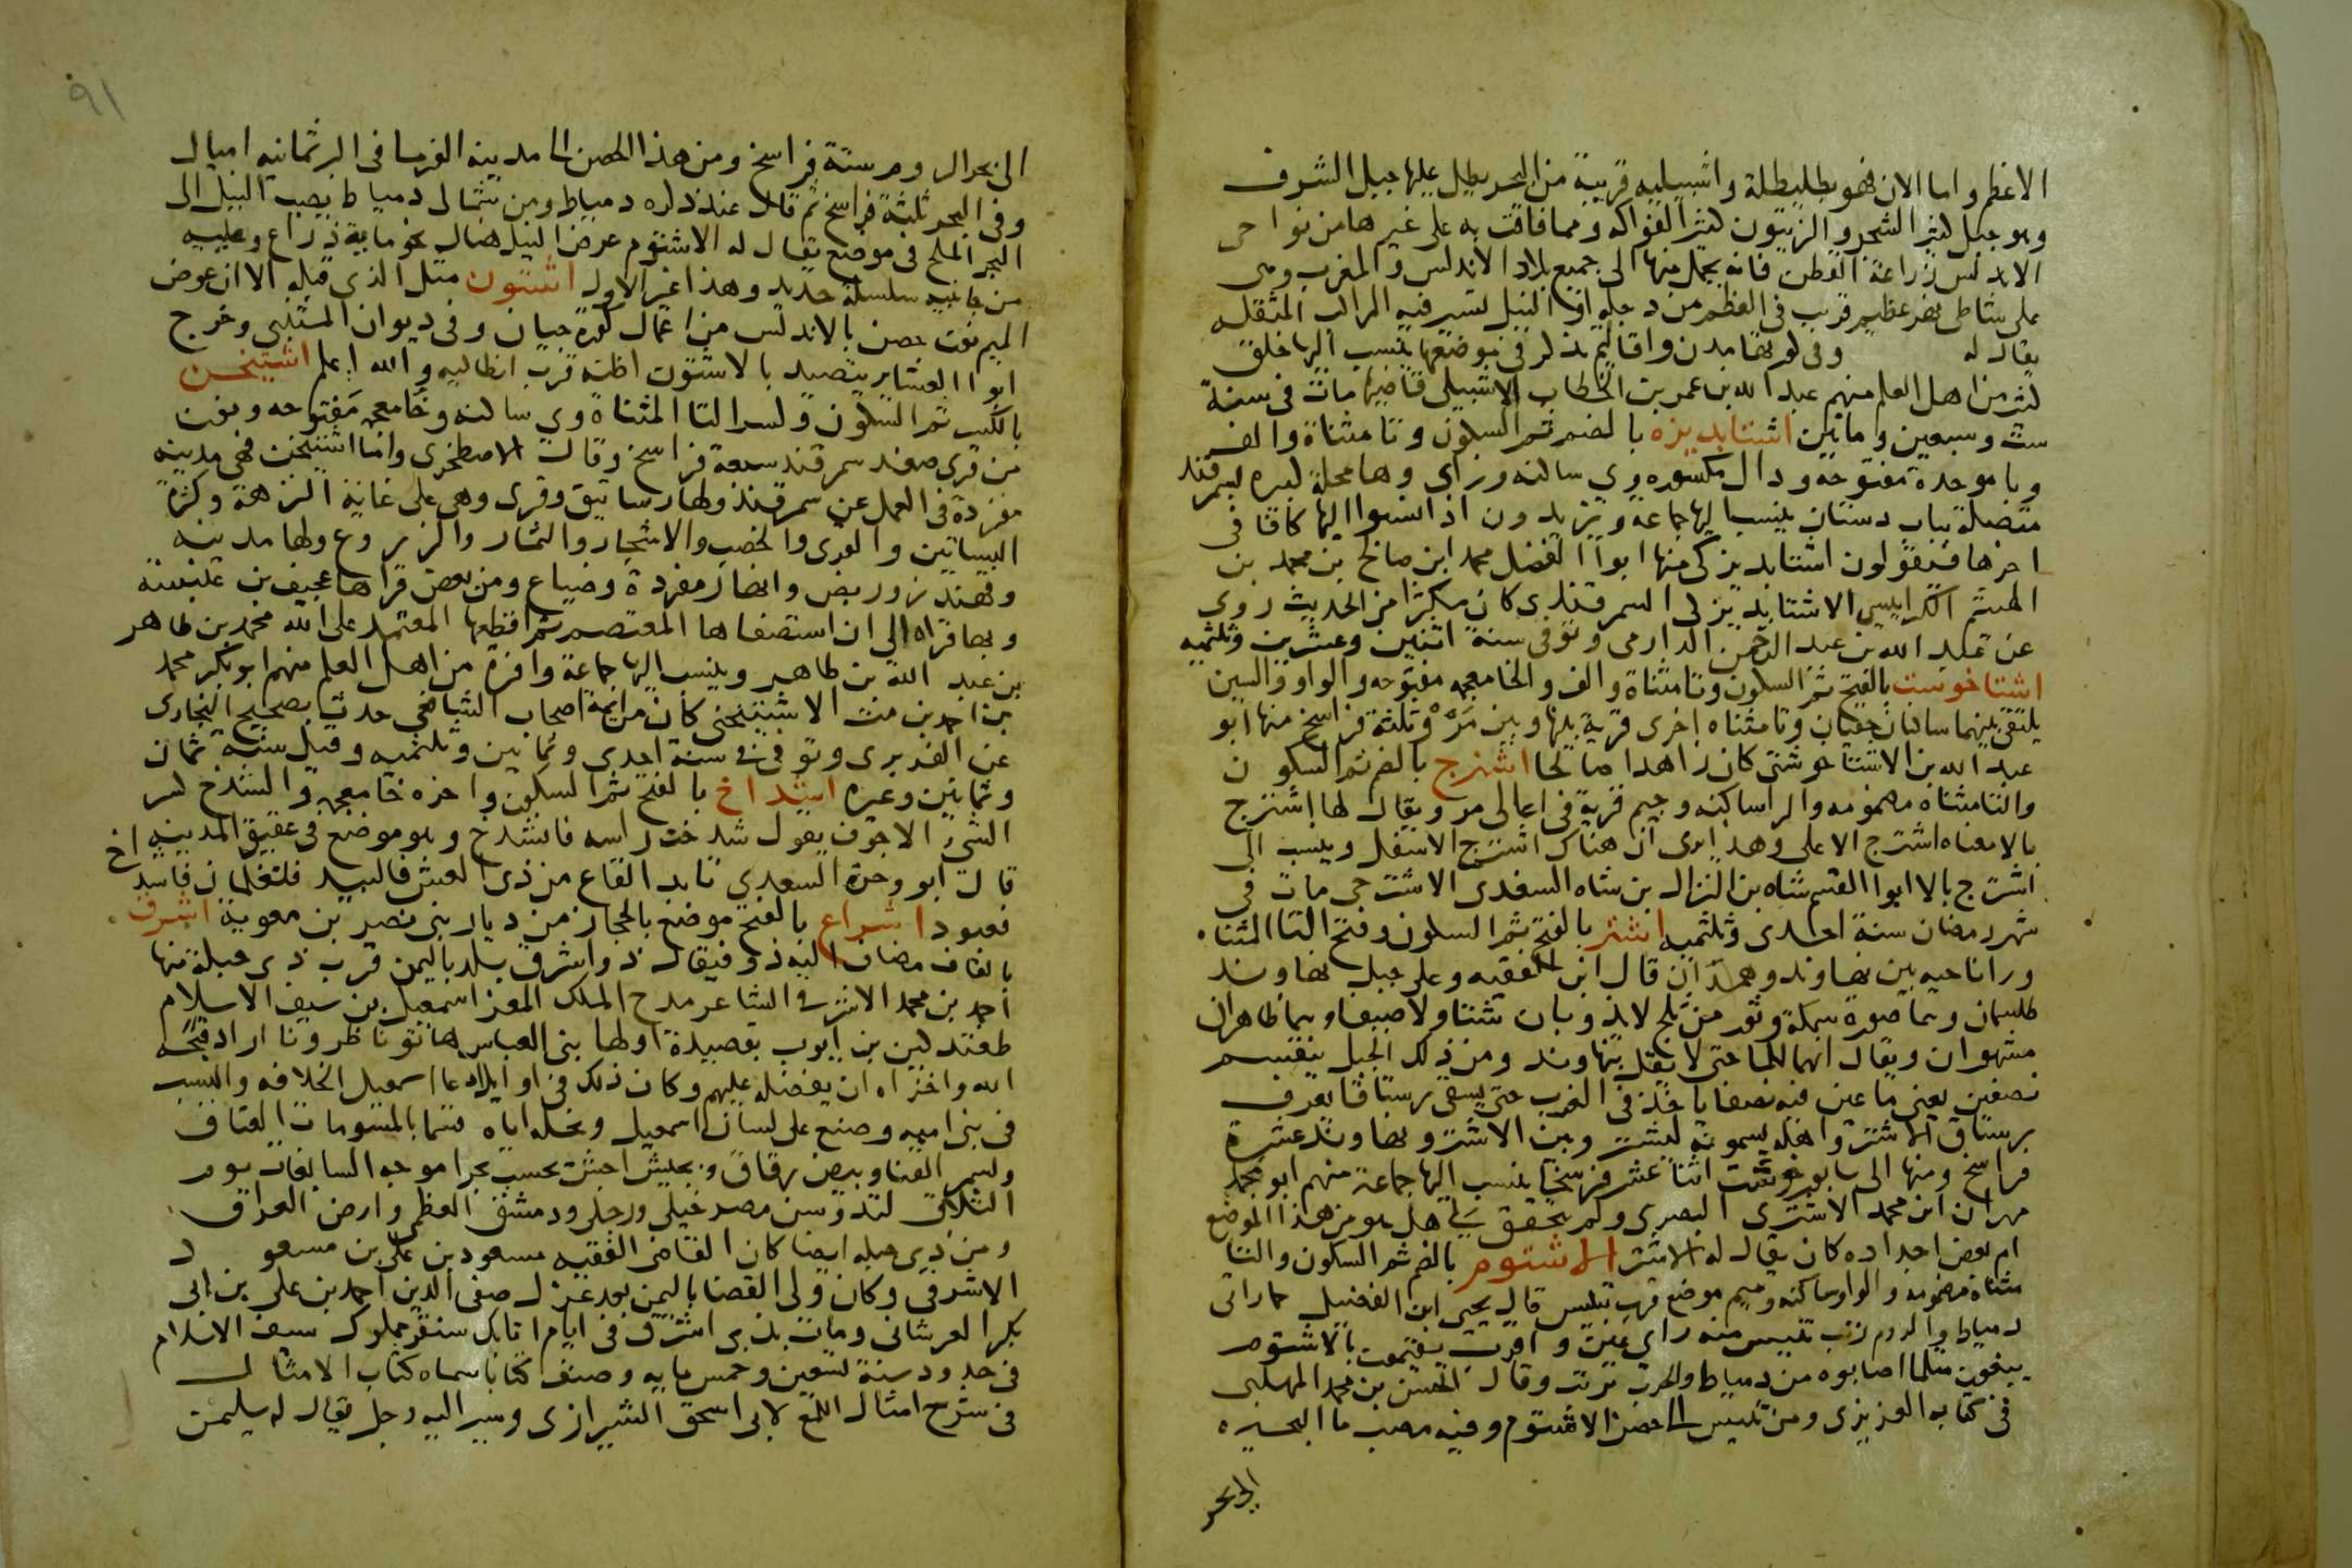 الاعظم واما الان فهو بطليطلة واشبيليه قريبة من البحر يطل عليها جبل الشرف
وهو جبل كثير الشجر والزيتون كثير الفواكه ومما فاقت به على غيرها من نواحى
الاندلس زراعة القطن فانه يحمل منها الى جميع بلاد الاندلس والمغرب وهى
على شاطى نهر عظيم قريب فى العظم من دجله او النيل تسير فيه المراكب المثقله
يقال له وفى كورتها مدن واقاليم تذكر فى مواضعها ينسب اليها خلق
كثير من اهل العلم منهم عبد الله بن عمر بن الخطاب الاشبيلى قاضيها مات فى سنة
ست وسبعين ومايتين اشتابديزه بالضم ثم السكون وتا مثناة والف
وبا موحدة مفتوحة ودال مكسوره وى ساكنه وزاى وها محلة كبيره بسمرقند
متصلة بباب دستان ينسب اليها جماعة ويزيدون اذا نسبوا اليها كافا فى
اخرها فيقولون اشتابديزكى منها ابوا الفضل محمد ابن صالح بن محمد بن
الهيثم الكرابيسى الاشتابديزكى السمرقندى كان مكثرا من الحديث روى
عن عبد الله بن عبد الرحمن الدارمى وتوفى سنة اثنين وعشرين وثلثميه
اشتاخوست بالفتح ثم السكون وتا مثناة والف والخا معجمه مفتوحه والواو والسين
يلتقى بينهما ساكنان خفيفان وتا مثناه اخرى قرية بينها وبين مَرْو ثلثة فراسخ منها ابو
عبد الله بن الاشتاخوشتى كان زاهدا صالحا اشترج بالضم ثم السكون
والتا مثناه مضمومه والرا ساكنه وجيم قرية فى اعالى مرو ويقال لها اشترج
بالا معناه اشترج الاعلى وهذا يرى ان هناك اشترج الاسفل وينسب الى
اشترج بالا ابوا القسم شاه بن النزال بن شاه السغدى الاشترجى مات فى
شهر رمضان سنة احدى وثلثميه اشتر بالفتح ثم السكون وفتح التا المثناه
ورا ناحيه بين نهاوند وهمذان قال ابن الفقيه وعلى جبل نهاوند
طلسمان وهما صورة سمكة وثور من ثلج لا يذوبان شتا ولا صيفا وهما ظاهران
مشهوران ويقال انهما للماحتى لا يقل بنهاوند ومن ذلك الجبل ينقسم
نصفين يعنى ما عين فيه نصفا ياخذ فى الغرب حتى يسقى رستاقا يعرف
برستاق الاشتر واهله يسمونه ليشتر وبين الاشتر ونهاوند عشرة
فراسخ ومنها الى سابورخوست اثنا عشر فرسخا ينسب اليها جماعة منهم ابو محمد
مهران ابن محمد الاشترى البصرى ولم يتحقق لى هل هو من هذا الموضع
ام بعض اجداده كان يقال له الاشتر الاشتوم بالضم ثم السكون والتا
مثناة مضمومه والواو ساكنه وميم موضع قرب تنيس قال يحيى ابن الفضيل حمار اتى
دمياط والروم زتب تنيس منه راى عين واقرب يقيمون بالاشتوم
يبغون مثلما اصابوه من دمياط والحرب ترتب وقال الحسن بن محمد المهلبى
فى كتابه العزيزى ومن تنيس الى حصن الاشتوم وفيه مصب ما البحيره
الى بحر
٩١
الى بحر الروم ستة فراسخ ومن هذا الحصن الى مدينه الفرما فى البر ثمانيه اميال
وفى البحر ثلثة فراسخ ثم قال عند ذكره دمياط ومن شمالى دمياط يصب النيل الى
البحر الملح فى موضع يقال له الاشتوم عرض النيل هناك نحو ماية ذراع وعليه
من جانبيه سلسلة حديد وهذا غير الاول اشتون مثل الذى قبله الا ان عوض
الميم نون حصن بالاندلس من اعمال كورة جيان وفى ديوان المتنبى وخرج
ابوا العشاير يتصيد بالاشتون اظنه قرب انطاليه والله اعلم اشتيخن
بالكسر ثم السكون وكسر التا المثناة وى ساكنه وخا معجمه مفتوحه ونون
من قرى صغد سمرقند سبعة فراسخ وقال الاصطخرى واما اشتيخن فهى مدينه
مفردة فى العمل عن سمرقند ولها رساتيق وقرى وهى على غاية النزهة وكثرة
البساتين والقرى والخصب والاشجار والثمار والزروع ولها مدينه
وقهندز وربض وانهار مفردة وضياع ومن بعض قراها عجيف بن عنبسة
وبها قراه الى ان استصفاها المعتصم ثم اقطعها المعتمد على الله محمد بن طاهر
بن عبد الله بن طاهر وينسب اليها جماعة وافرة من اهل العلم منهم ابو بكر محمد
بن احمد بن مت الاشتيخنى كان من ايمة اصحاب الشافعى حدث بصحيح البخارى
عن الفربرى وتوفى فى سنة احدى وثمانين وثلثميه وقيل سنة ثمان
وثمانين وغيره اشداخ بالفتح ثم السكون واخره خا معجمه والشدخ كسر
الشىء الاجوف يقول شدخت راسه فانشدخ وهو موضع فى عقيق المدينه
قال ابو وجزة السعدى تابد القاع من ذى العش فالبيد فتغلمان فاشداخ
فعبود اشراع بالفتح موضع بالحجاز من ديار بنى نصر بن معوية اشرف
بالفاف مضاف اليه ذو فيقال ذو اشرق بلد باليمن قرب ذى جبلة منها
احمد بن محمد الاشرقى الشاعر مدح الملك المعز اسمعيل بن سيف الاسلام
طغتدكين بن ايوب بقصيدة اولها بنى العباس هاتوا ناظرونا اراد قبحه
الله واخزاه ان يفضله عليهم وكان ذلك فى اوايل ادعا اسمعيل الخلافه والنسب
فى بنى اميه وصنع على لسان اسمعيل ونحله اياه قسما بالمسومات العتاق
وبسمر القنا وبيض رقاق وبجيش اجش تحسب بحرا موجه السابغات يوم
التلاق لتدوسن مصر خيلى ورجلى ودمشق العظمى وارض العراق
ومن ذى جبله ايضا كان القاضى الفقيه مسعود بن على بن مسعود
الاشرقى وكان ولى القضا باليمن بعد عزل صفى الدين احمد بن على بن ابى
بكر العرشانى ومات بذى اشرق فى ايام اتابك سنقر مملوك سيف الاسلام
فى حدود سنة تسعين وخمس مايه وصنف كتابا سماه كتاب الامثال
فى شرح امثال اللمع لابى اسحق الشيرازى وسير اليه رجل يقال له سليمن